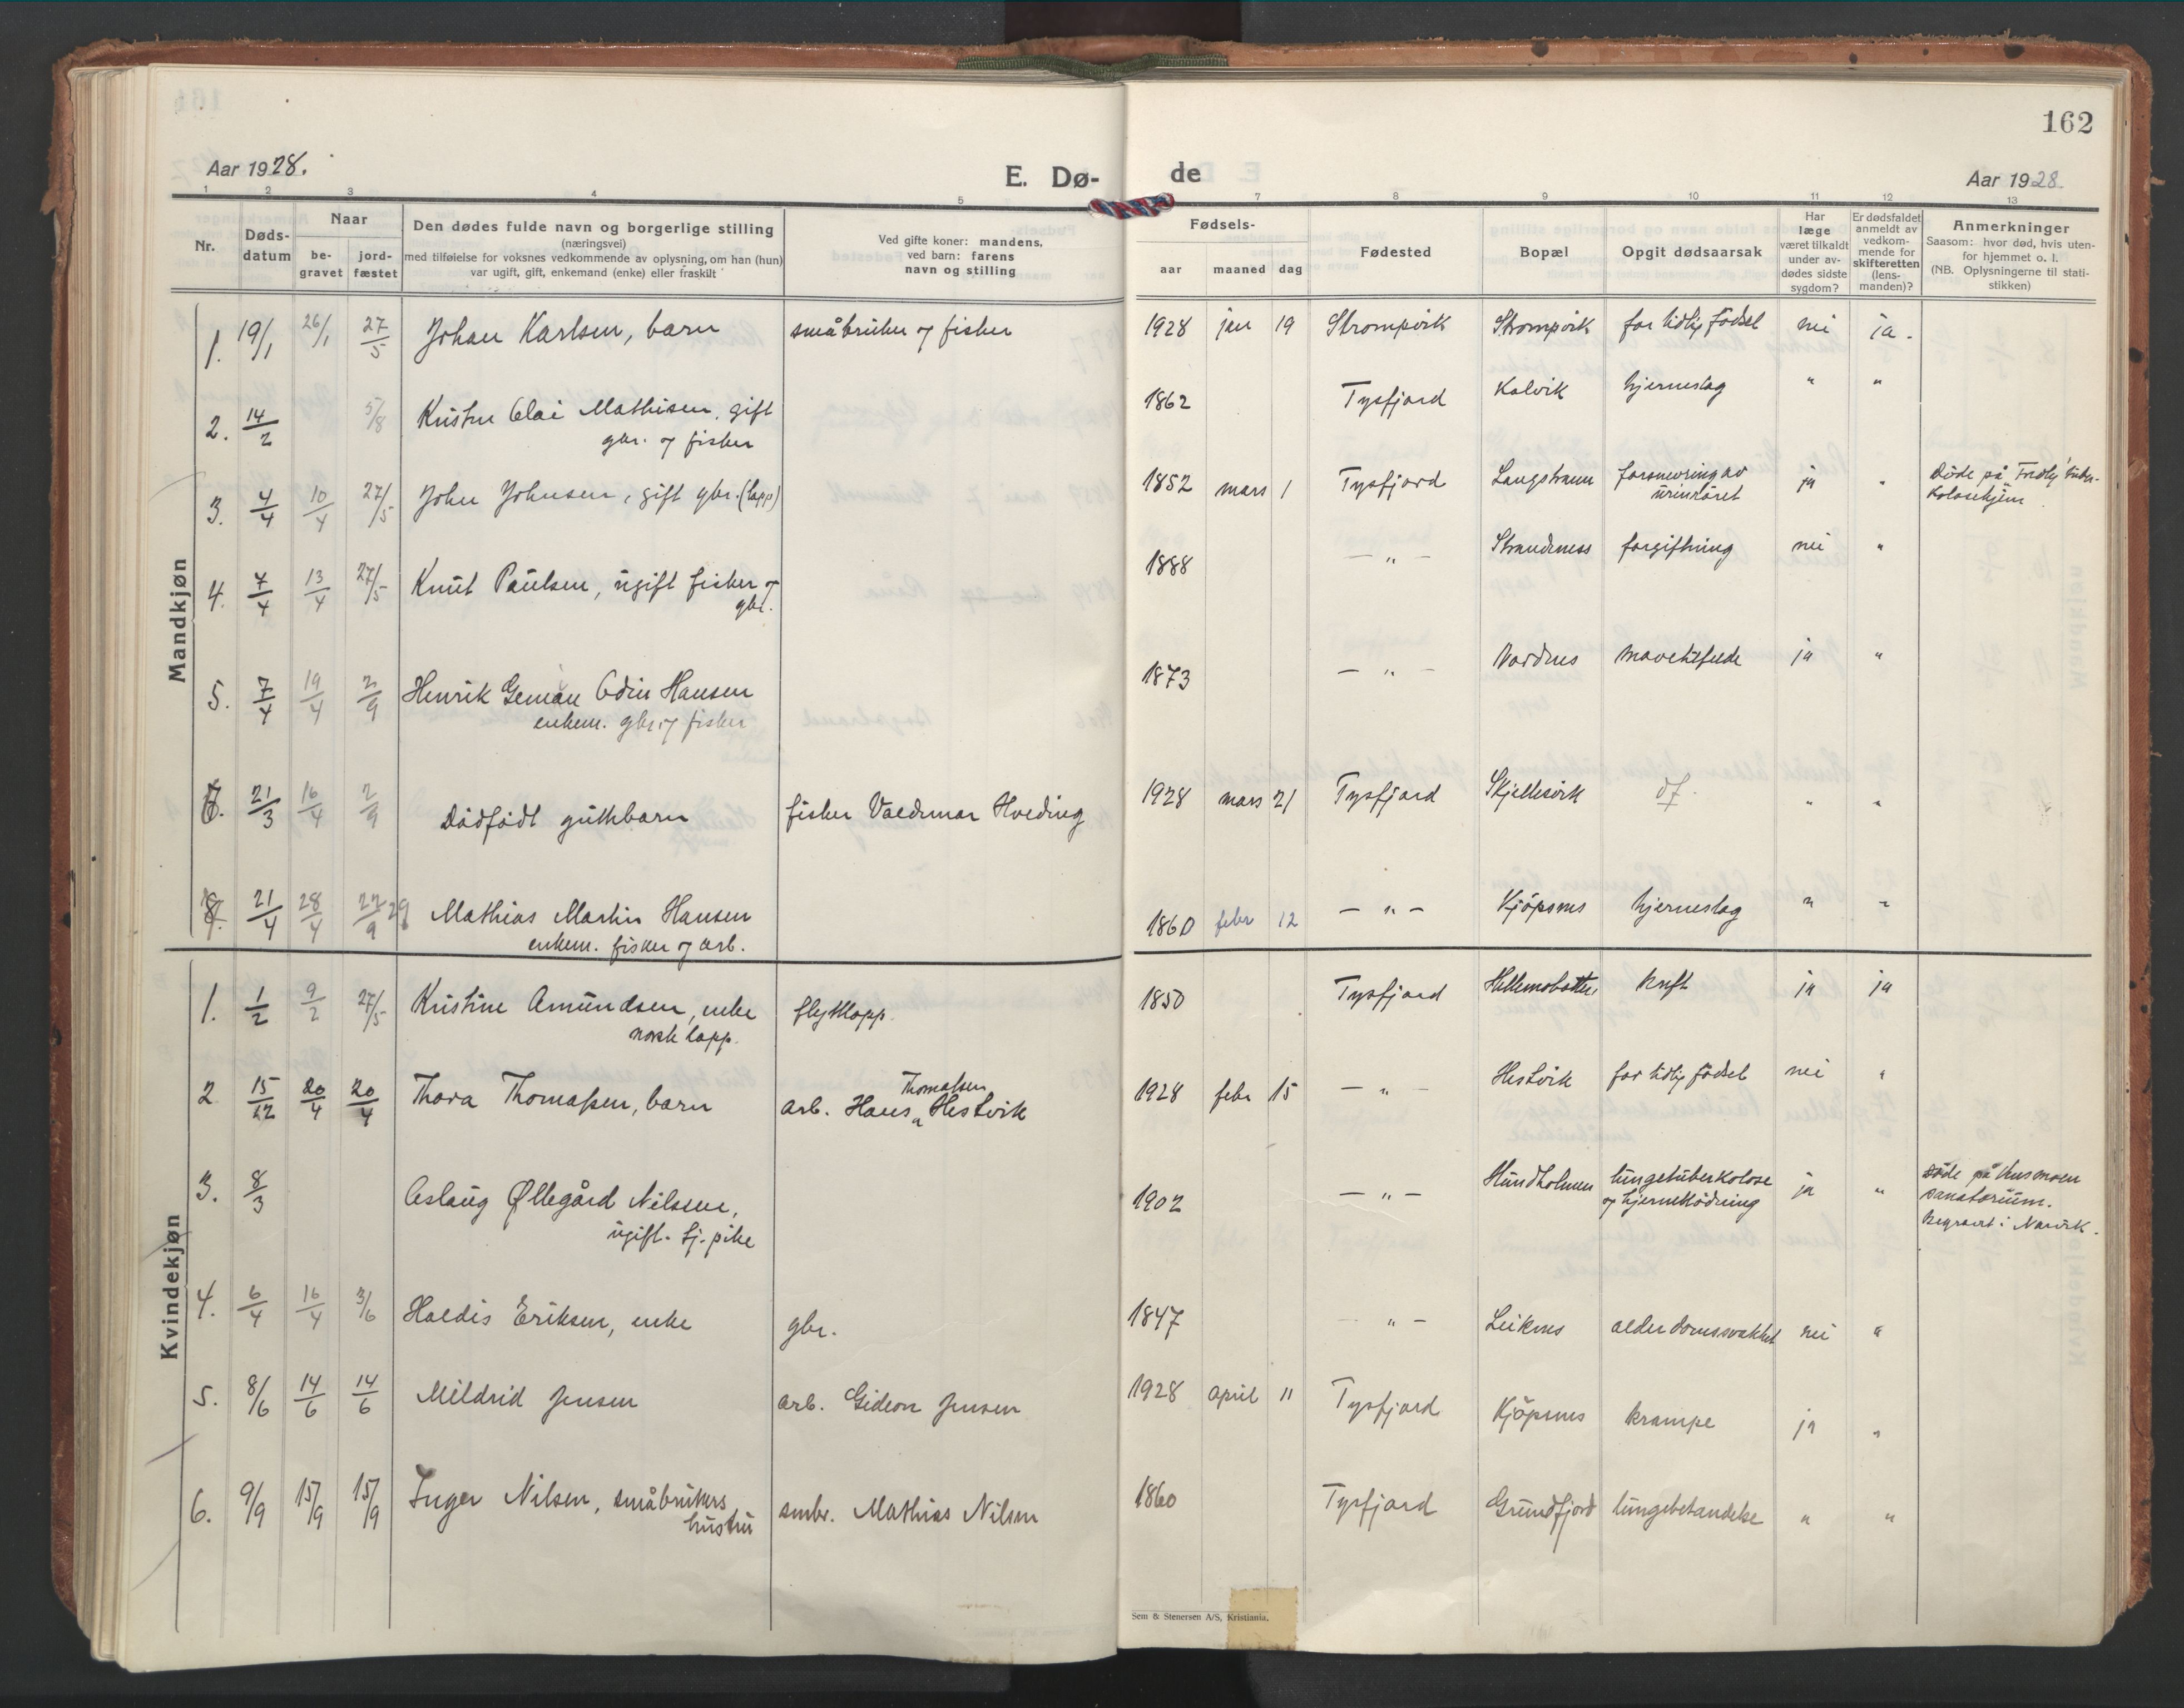 162
Aar 1928.
E. Dø-
de
Aar 1928
1 2 3 4 5 7 8 9 10 11 12 13
Nr.
Døds-
datum
Naar
be-
gravet
jord-
fæstet
Den dødes fulde navn og borgerlige stilling
(næringsvei)
med tilføielse for voksnes vedkommende av oplysning, om han (hun)
var ugift, gift, enkemand (enke) eller fraskilt
Ved gifte koner: mandens,
ved barn: farens
navn og stilling
Fødsels-
aar maaned dag
Fødested
Bopæl
Opgit dødsaarsak
Har
læge
været tilkaldt
under av-
dødes sidste
sygdom?
Er dødsfaldet
anmeldt av
vedkom-
mende for
skifteretten
(lens-
manden)?
Anmerkninger
Saasom: hvor død, hvis uten-
for hjemmet o. l.
(NB. Oplysningerne til stati-
stikken)
Mandkjøn
1. 19/1 26/1 27/5 Johan Karlsen, barn småbruker og fisker 1928 jan 19 Strompvik Strompvik for tidlig födsel nei ja.
2. 14/2 5/8 Kristen Olai Mathisen, gift 1862 Tysfjord Kalvik hjerneslag " "
gbr. og fisker
3. 4/4 10/4 27/5 John Johnsen, gift gbr. (lapp) 1852 mars 1 Tysfjord Langstrann forsnevring av ja " Döde på "Fredly" tuber-
urinröret kolosehjem
4. 7/4 13/4 27/5 Knut Paulsen, ugift fisker og 1888 — " — Strandness forgiftning nei "
gbr.
5. 7/4 19/4 2/9 Henrik Geman Odin Hansen 1873 — " — Nordnes mavetilfelde ja "
enkem. gbr. og fisker
6. 21/3 16/4 2/9 Dödfödt guttebarn fisker Valdemar Hveding 1928 mars 21 Tysfjord Skjellesvik df. " "
7. 21/4 28/4 29 Mathias Martin Hansen 1860 febr 12 — " — Kjöpsnes hjerneslag " "
enkem. fisker og arb.
Kvindekjøn
1. 1/2 9/2 27/5 Kristine Amundsen, enke flyttlapp. 1850 Tysfjord Hellemobotten kreft ja ja
norsk lapp.
2 15/12 20/4 20/4 Thora Thomassen, barn arb. Hans Thomassen Hestvik 1928 febr 15 — " — Hestvik for tidlig födsel nei "
3. 8/3 Aslaug Øllegård Nilsen, 1902 — " — Hundholmen lungetuberkolose ja " Döde på Kusmoen
ugift. tj. pike og hjerneblödning sanatorium.
Begravet i Narvik.
4. 6/4 16/4 3/6 Haldis Eriksen, enke gbr. 1847 — " — Leiknes alderdomssvakhet nei "
5. 8/6 14/6 14/6 Mildrid Jensen arb. Gideon Jensen 1928 april 11 Tysfjord Kjöpsnes krampe ja "
6. 9/9 15/9 15/9 Inger Nilsen, småbrukers smbr. Mathias Nilsen 1860 Tysfjord Grundfjord lungebetændelse " "
hustru
Sem & Stenersen A/S, Kristiania.